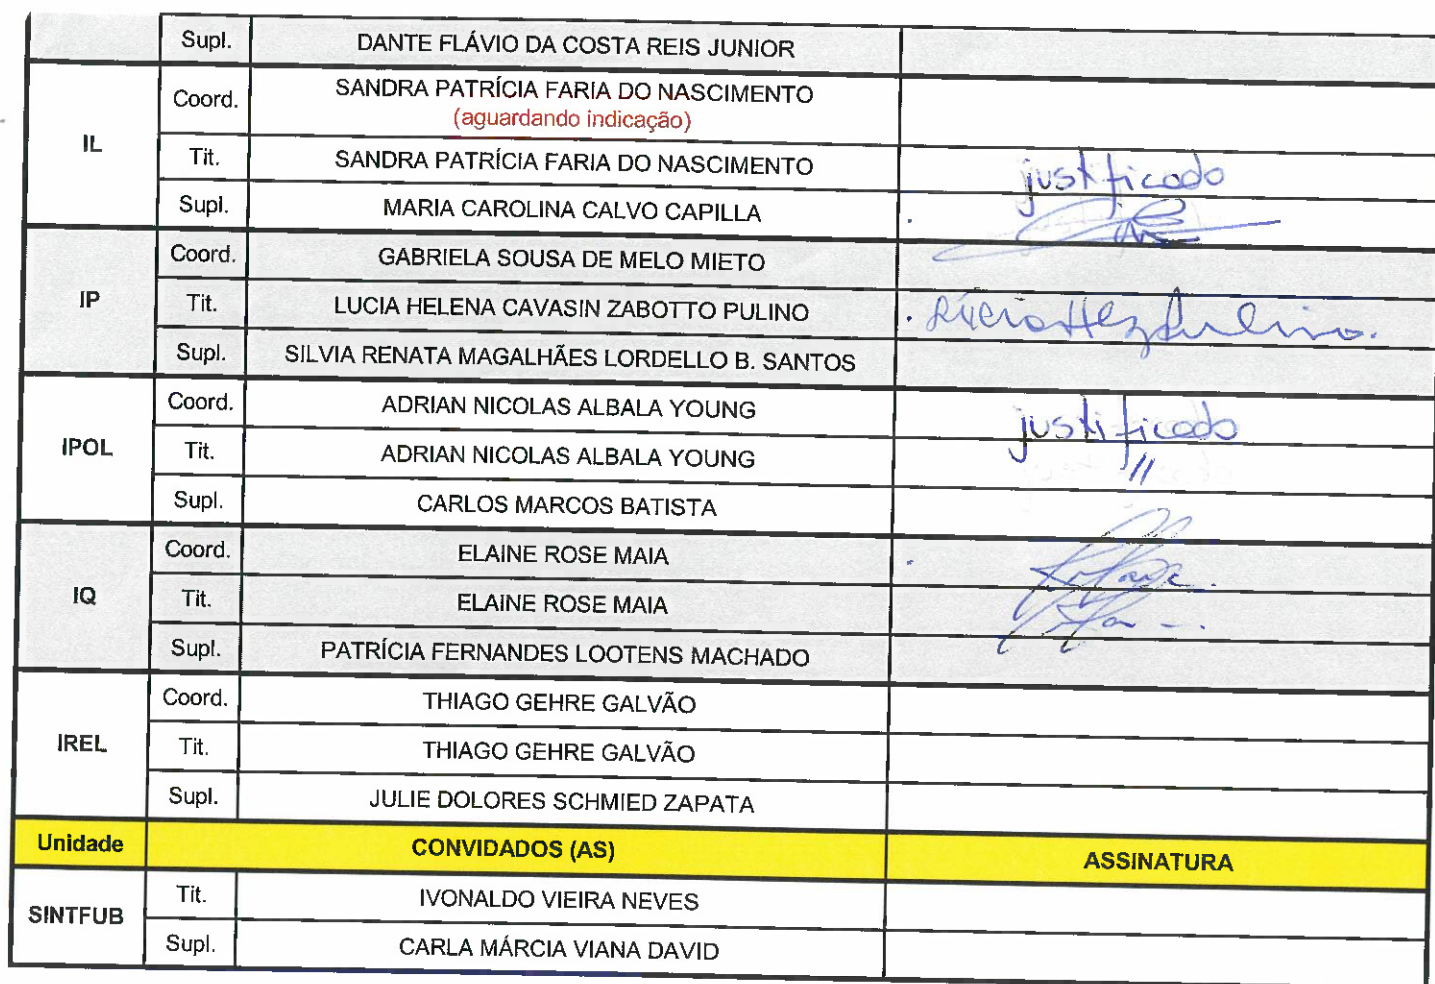 Supl. DANTE FLÁVIO DA COSTA REIS JUNIOR
IL Coord. SANDRA PATRÍCIA FARIA DO NASCIMENTO
(aguardando indicação)
Tit. SANDRA PATRÍCIA FARIA DO NASCIMENTO justificado
Supl. MARIA CAROLINA CALVO CAPILLA
IP Coord. GABRIELA SOUSA DE MELO MIETO
Tit. LUCIA HELENA CAVASIN ZABOTTO PULINO
Supl. SILVIA RENATA MAGALHÃES LORDELLO B. SANTOS
IPOL Coord. ADRIAN NICOLAS ALBALA YOUNG justificado
Tit. ADRIAN NICOLAS ALBALA YOUNG //
Supl. CARLOS MARCOS BATISTA
IQ Coord. ELAINE ROSE MAIA
Tit. ELAINE ROSE MAIA
Supl. PATRÍCIA FERNANDES LOOTENS MACHADO
IREL Coord. THIAGO GEHRE GALVÃO
Tit. THIAGO GEHRE GALVÃO
Supl. JULIE DOLORES SCHMIED ZAPATA
Unidade CONVIDADOS (AS) ASSINATURA
SINTFUB Tit. IVONALDO VIEIRA NEVES
Supl. CARLA MÁRCIA VIANA DAVID